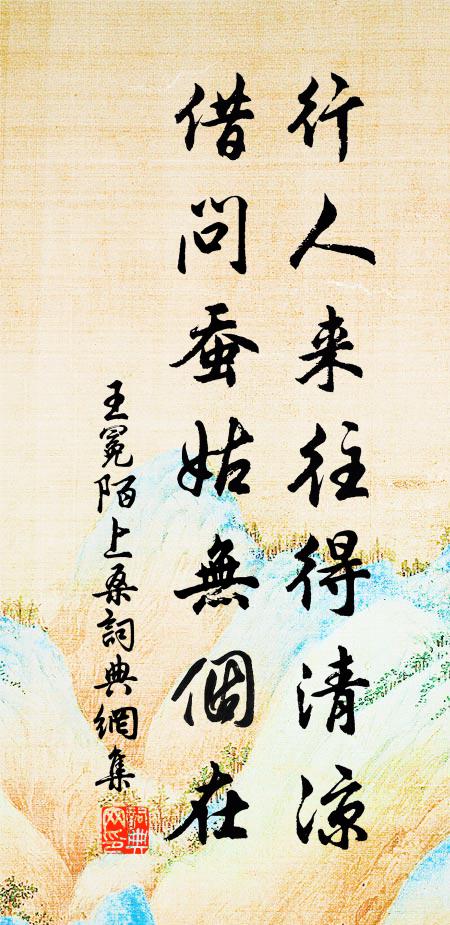 行人来往得清凉
借问蚕姑無個在
王冕陌上桑詞典網集
詞典
网印